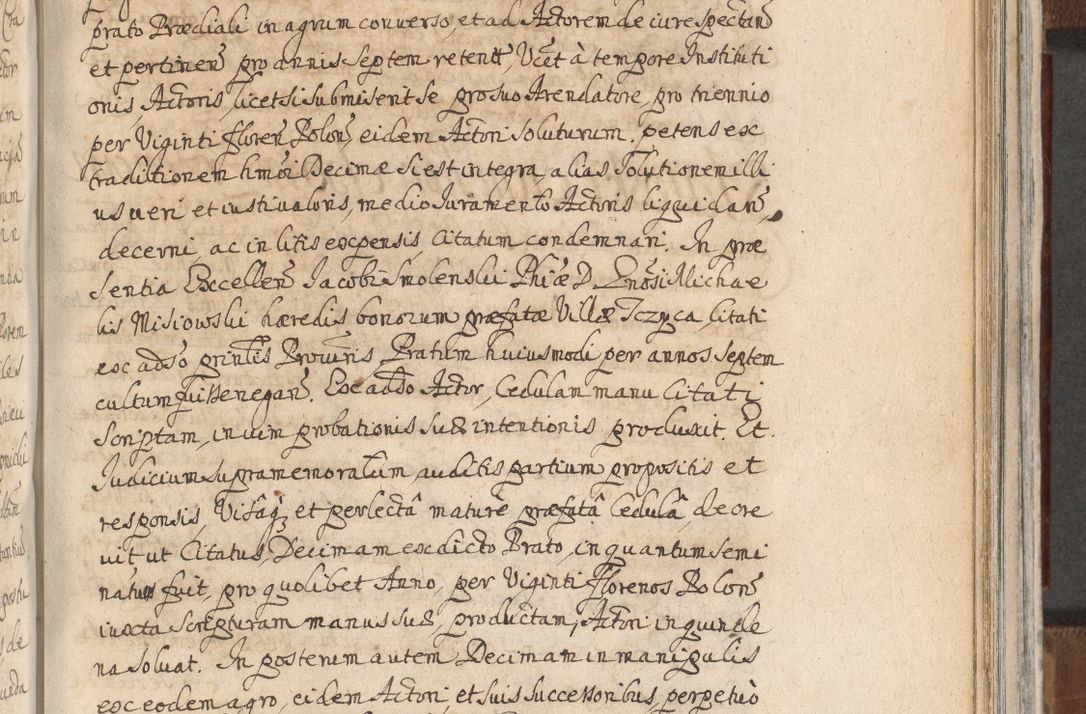 prato Prædiali in agrum conuerso, et ad Actorem de iure spectañ
et pertineñ pro annis septem retent, Vcet à tempore Instituti
onis, Actoris, licet si submiserit se pro suo Arendatore, pro triennio
per Viginti floreñ Poloñ, eidem Actori soluturum. petens ex
traditionem hmõi Decimæ si est integra, alias solutionem illi
us ueri et iusti ualoris, medio Iuramento Actoris liquidañ,
decerni, ac in litis expensis Citatum condemnari. In præ
sentia Excelleñ Iacobi Smolenski Phiæ D. Gnosi Michae
lis Misiowski hæredis bonorum præfatæ Villæ Tczyca, Citati
ex adso prinlis Prouuris, Pratum huiusmodi per annos septem
cultum fuisse negañ. Ex adso Actor, Cedulam manu Citati
Scriptam, in uim probationis suæ intentionis produxit. Et
Iudicium supramemoratum, auditis partium propositis et
responsis, Visâq3 et perlectâ maturè præfatâ Cedulâ, decre
uit ut Citatus, Decimam ex dicto Prato, in quantum semi
natum fuit, pro quolibet Anno, per Viginti florenos Poloñ
iuxta Scripturam manus suæ, productam, Actori in quinde
na soluat. In posterum autem Decimam in manipulis
ex eodem agro, eidem Actori, et suis Successoribus, perpetuò